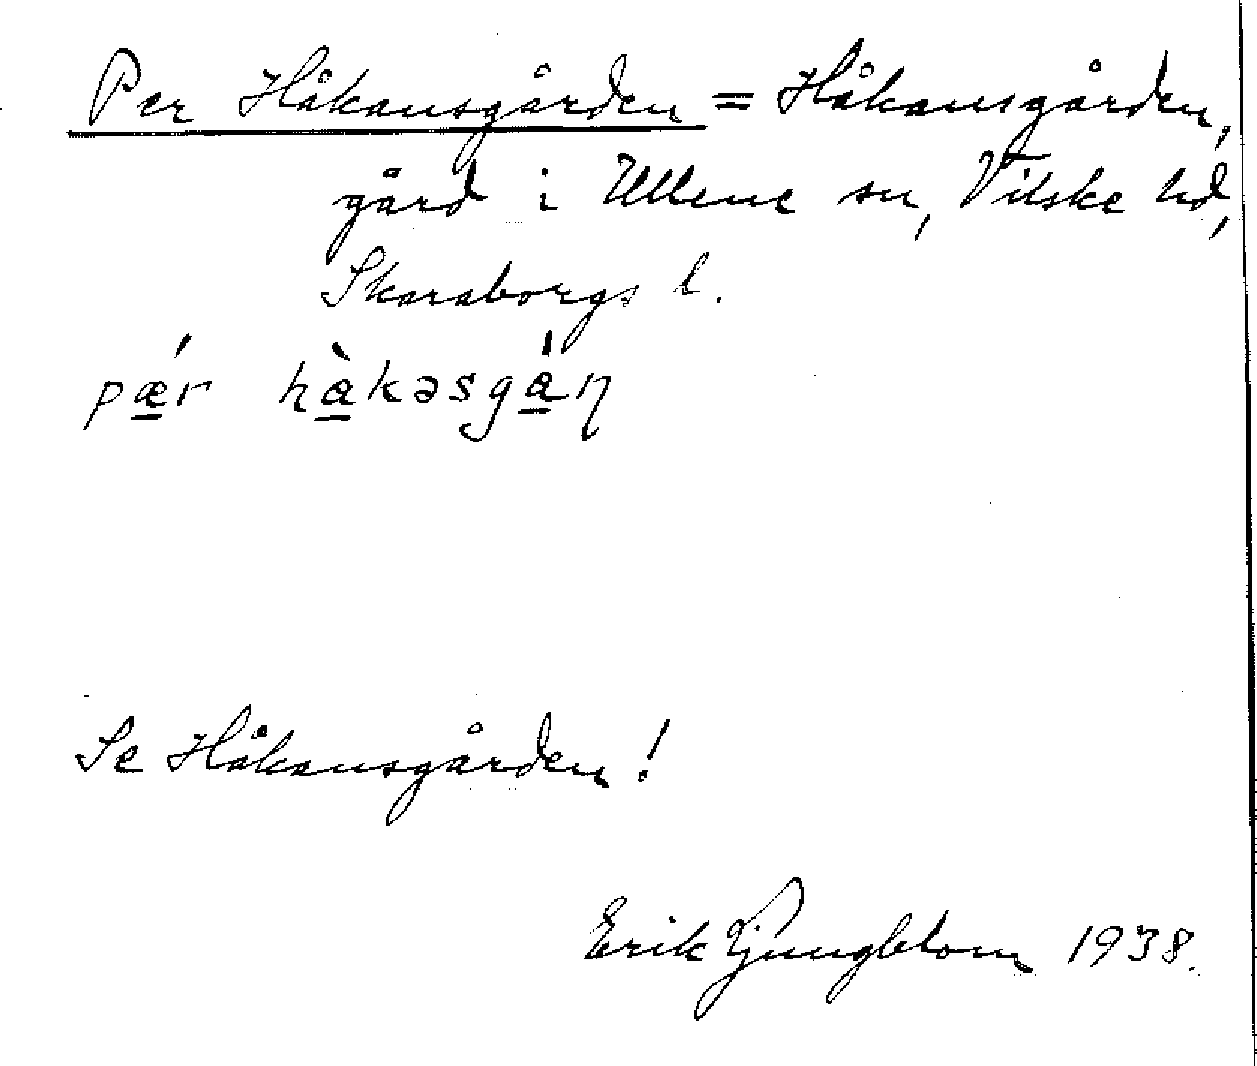 Per Håkansgården = Håkansgården,
gård i Ullene sn, Vilske hd,
Skaraborgs l.
pǽr hàkəsgáɳ
Se Håkansgården!
Erik Ljungblom 1938.